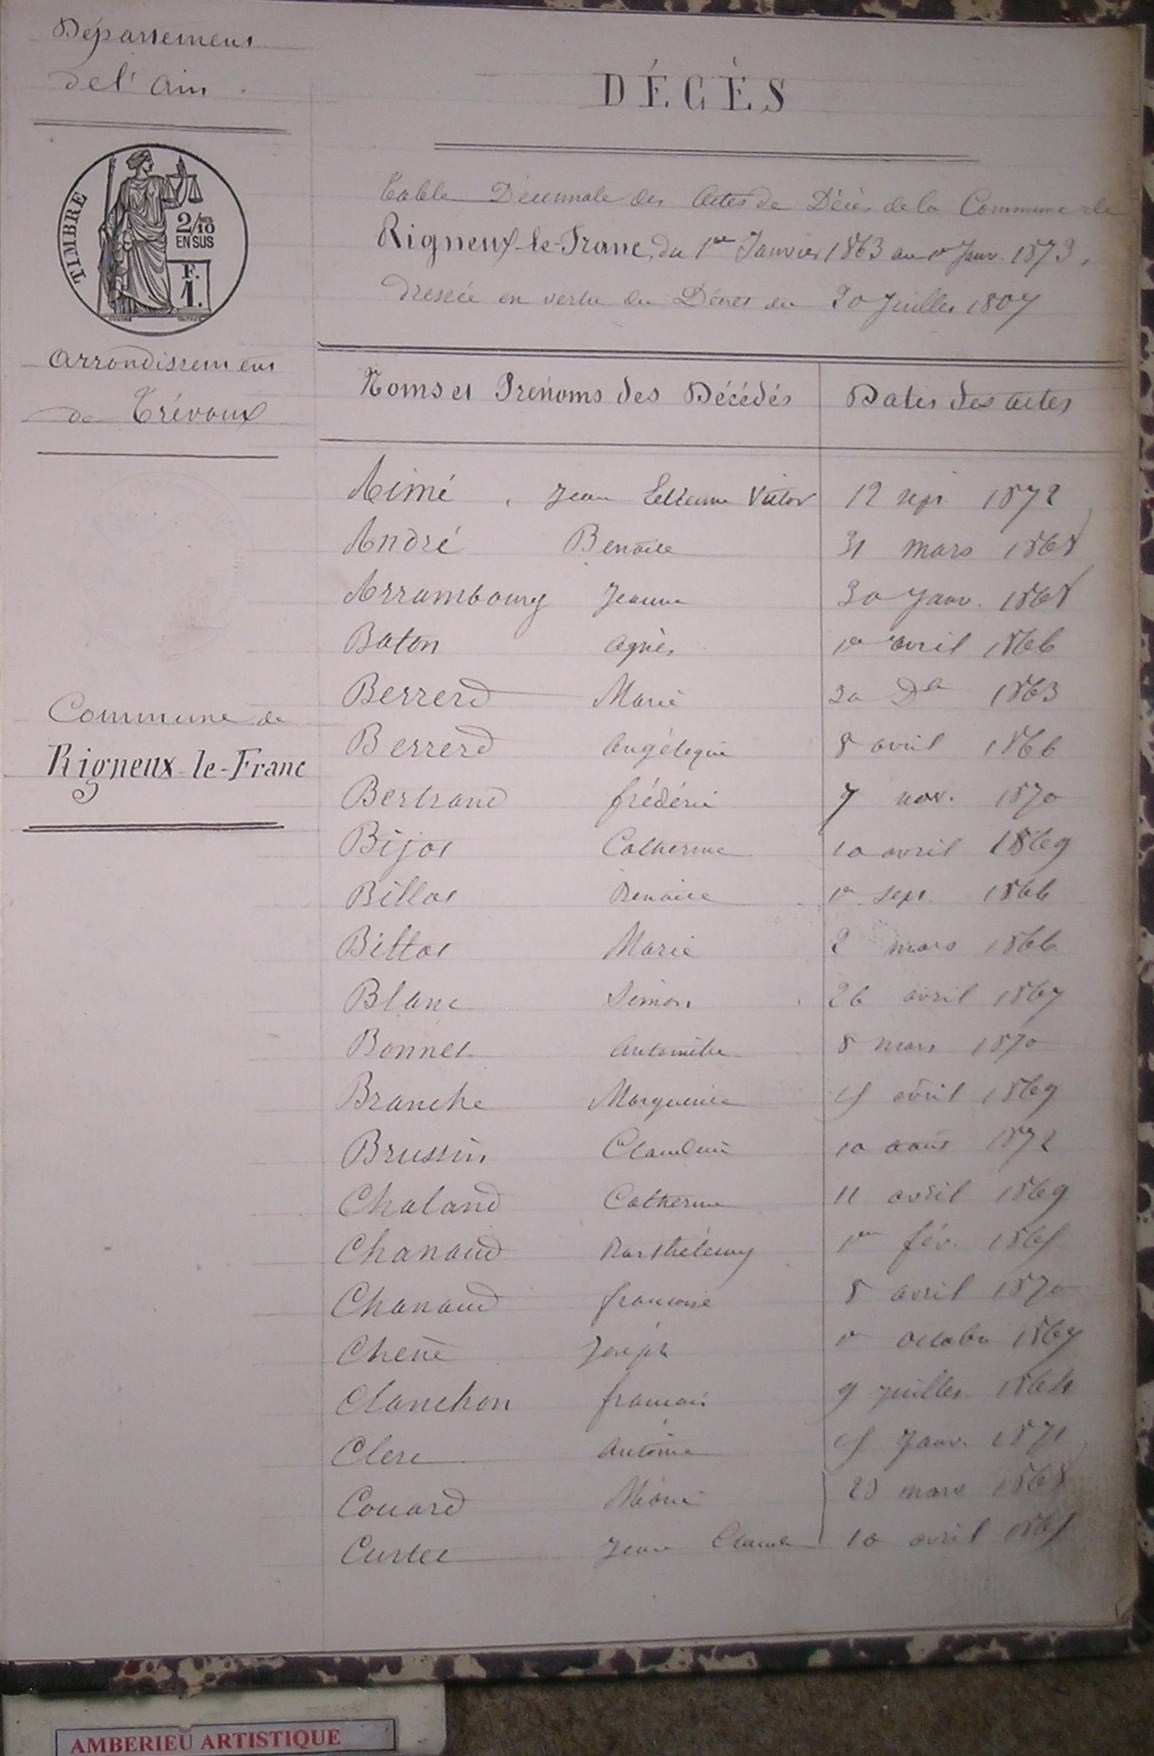 Département
de l'Ain.
TIMBRE
2/10 EN SUS
F. 1.
Arrondissement
de Trévoux
Commune de
Rigneux-le-Franc
DÉCÈS
Table Décennale des Actes de Décès de la Commune de
Rigneux-le-Franc, du 1er Janvier 1863 au 1er Janv. 1873,
dressée en vertu du Décret du 20 Juillet 1807
Noms et Prénoms des Décédés Dates des actes
Aimé Jean Etienne Victor 12 sept 1872
André Benoite 31 mars 1868
Arrambourg Jeanne 30 Janv. 1868
Baton Agnès 1er avril 1866
Berrerd Marie 30 Dbre 1863
Berrerd Angélique 8 avril 1866
Bertrand frédéric 7 nov. 1870
Bijot Catherine 10 avril 1869
Billot Benoite 1er sept. 1866
Billot Marie 2 mars 1866
Blanc Simon 26 avril 1867
Bonnet Antoinette 8 mars 1870
Branche Marguerite 15 avril 1869
Brussin Claudine 10 août 1872
Chaland Catherine 11 avril 1869
Chanaud Barthélemy 1er fév. 1865
Chanaud françoise 8 avril 1870
Chene Joseph 1er octobre 1867
Clanchon françois 9 juillet 1864
Clerc Antoine 15 Janv. 1871
Couard Marie 23 mars 1868
Curtet Jean Claude 10 avril 1865
AMBERIEU ARTISTIQUE